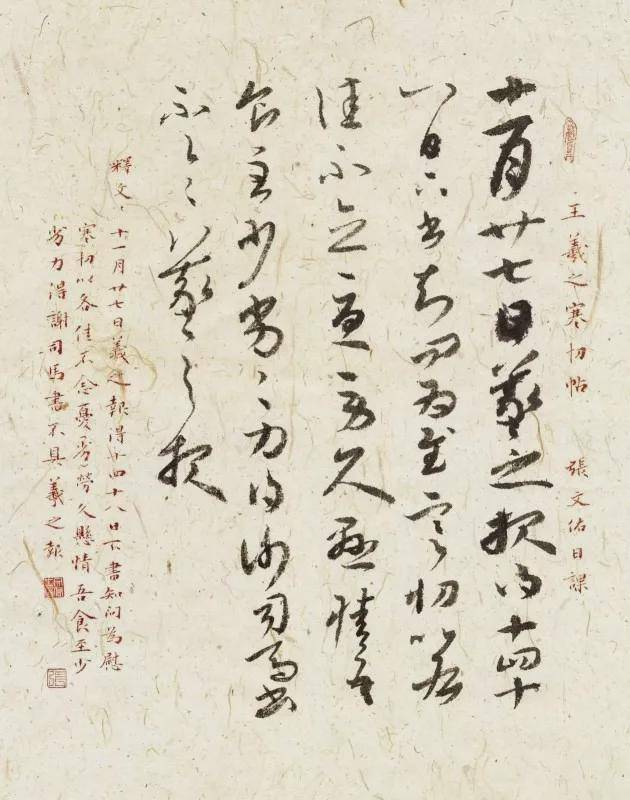 王羲之寒切帖 張文佑日課
十一月廿七日羲之報得十四十
八日二書知問為慰寒切比各
佳不念憂勞久懸情吾
食至少劣〻力得謝司馬書
不具羲之報
釋文、十一月廿七日羲之報得十四十八日下書知問為慰
寒切比各佳不念憂勞久懸情吾食至少
劣力得謝司馬書不具羲之報